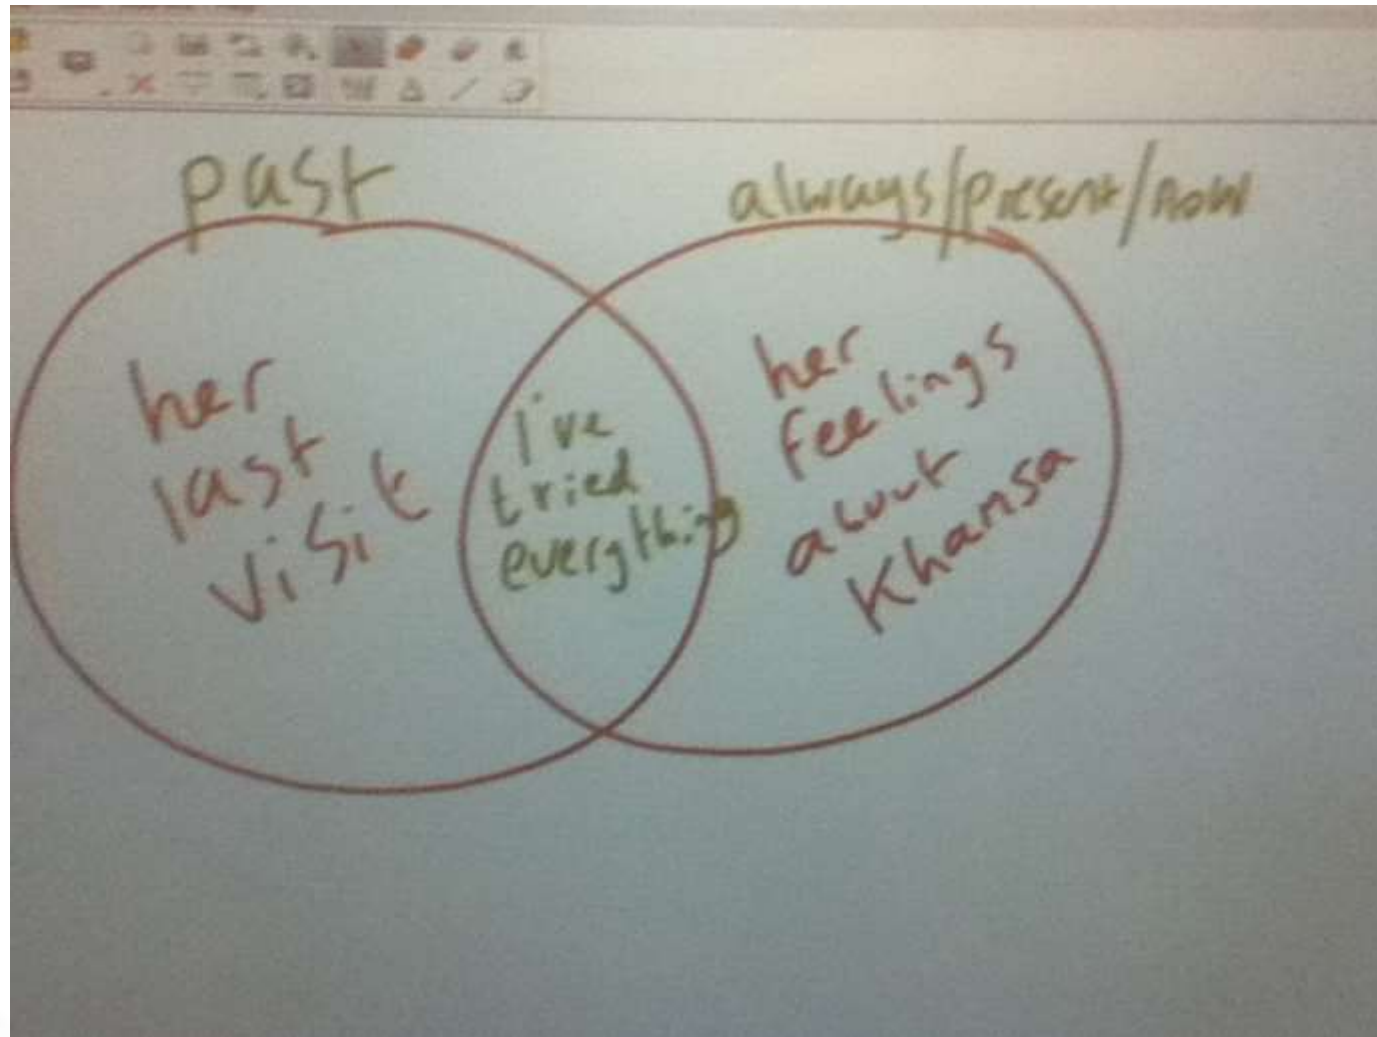 past
always/present/now
her
last
visit
I've
tried
everything
her
feelings
about
Khamsa